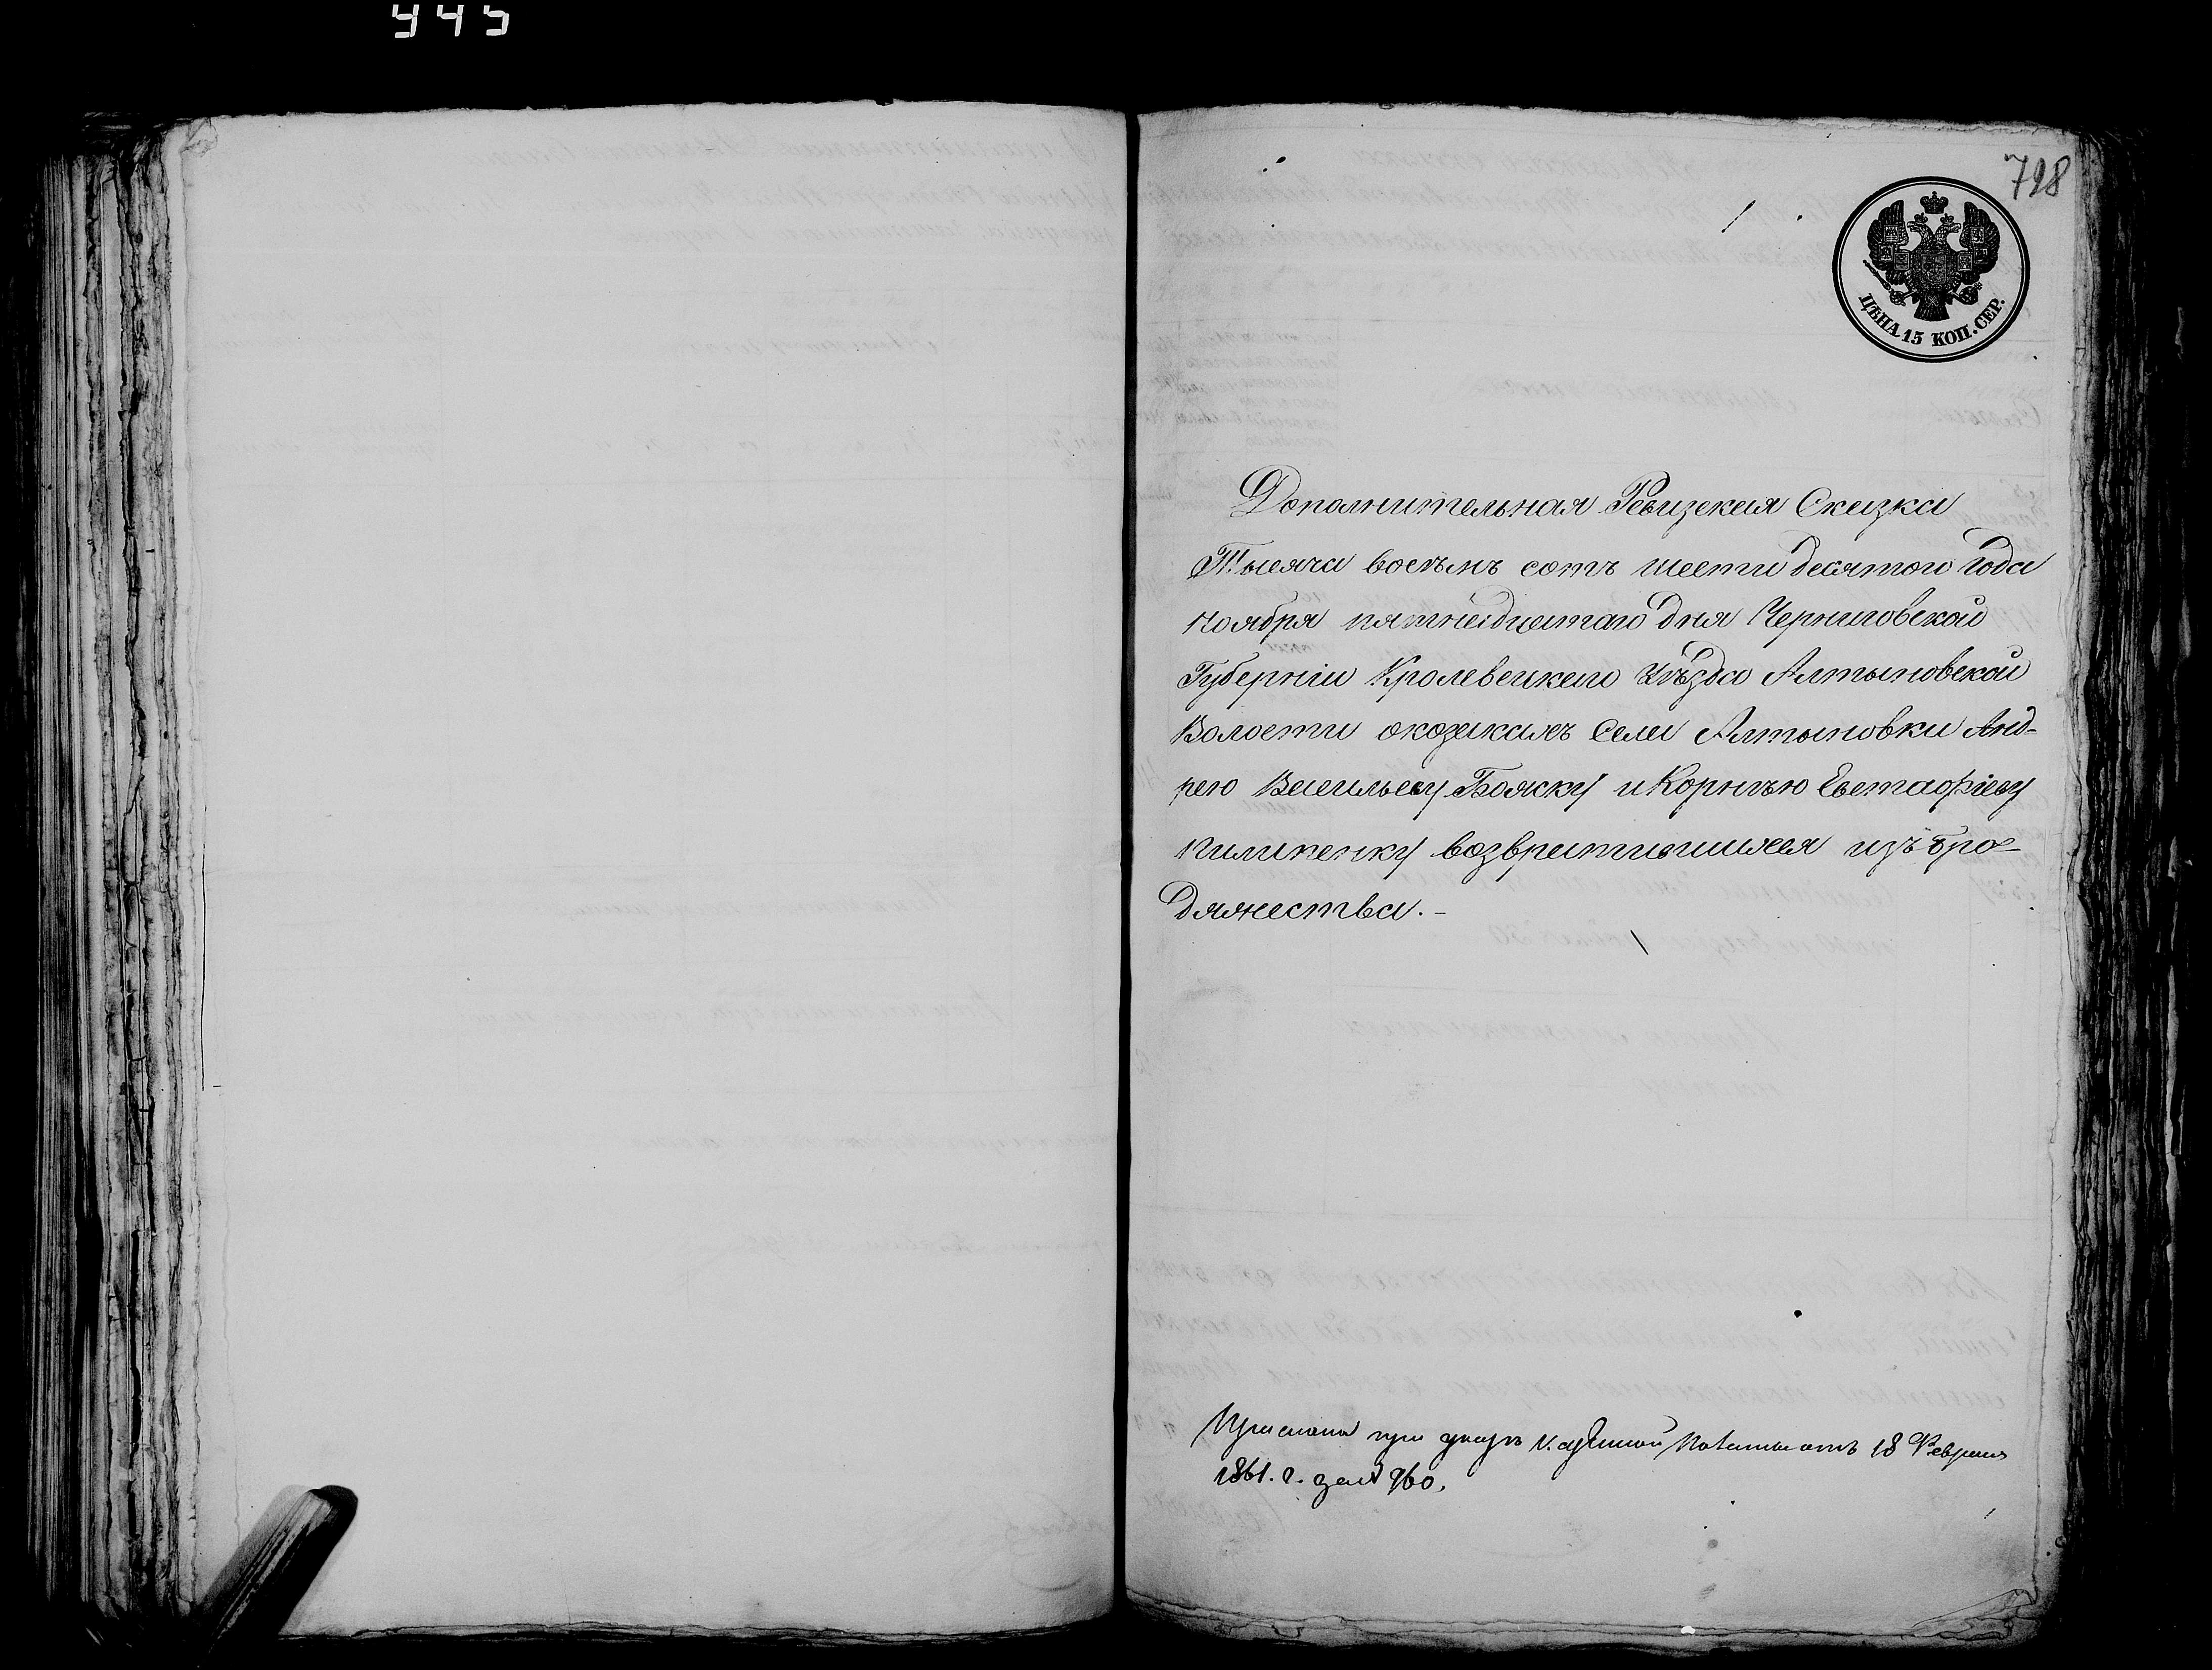 445
798
ЦѢНА 15 КОП. СЕР.
Дополнительная Ревизская Сказка
Тысяча восемь сотъ шестидесятого Года
Ноября пятнадцатаго дня Черниговской
Губерніи Кролевецкаго Уѣзда Алтыновской
Волости о козакахъ Села Алтыновки Анд-
рею Васильеву Бояску и Корнѣю Евстафіеву
Пилипенку возвратившихся изъ бро-
дяжества.-
Прислана при указѣ Казенной Палаты отъ 18 Февраля
1861. г. за № 960.